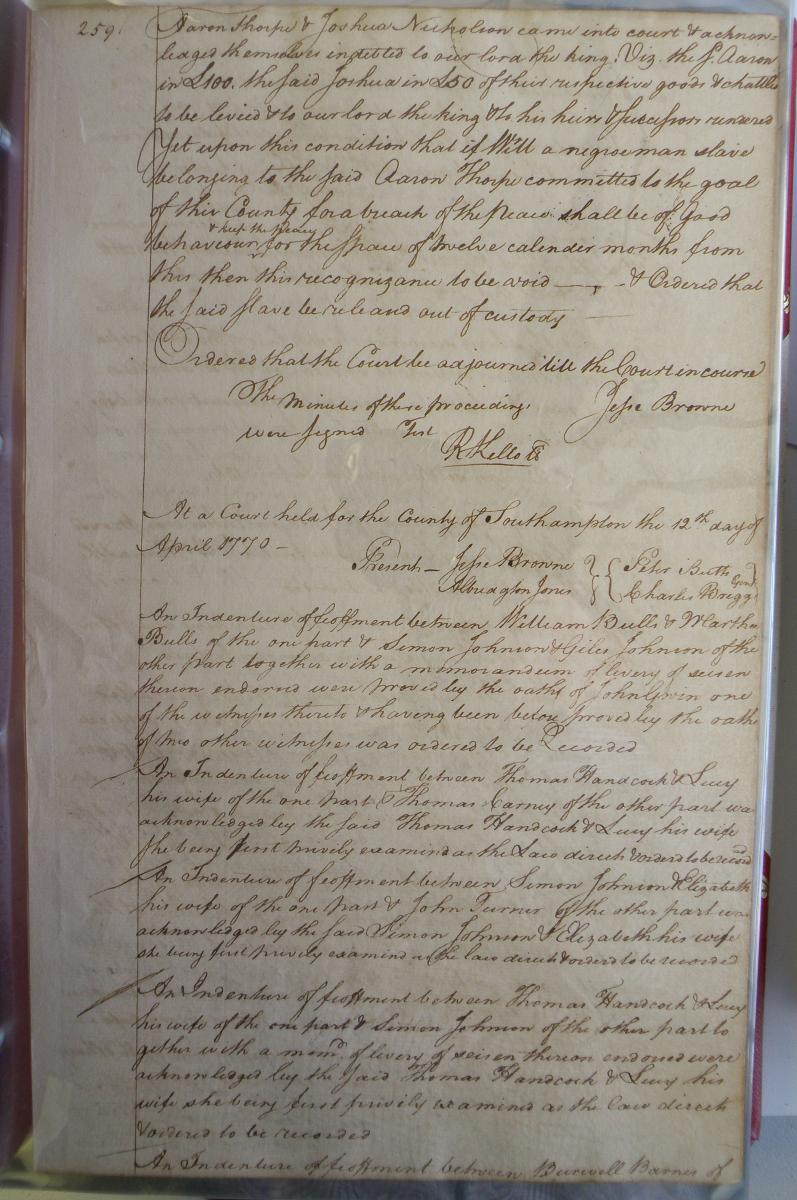 259
Aaron Thorpe & Joshua Nicholson came into court & acknow=
ledged themselves indebted to our lord the king, Viz. the sd. Aaron
in £100. the said Joshua in £50 of their respective goods & chattles
to be levied & to our lord the king & to his heirs & successors rendered
Yet upon this condition that if Will a negroe man slave
belonging to the said Aaron Thorpe committed to the goal
of this County for a breach of the peace shall be of Good
& keep the peace
behaviour for the space of twelve calender months from
this then this recognizance to be void — & Ordered that
the said slave be releasd out of custody
Ordered that the Court be adjourned till the Court in course
The Minutes of these proceedings Jesse Browne
were signed Test
R Kello
At a Court held for the County of Southampton the 12th day of
April 1770 –
Present – Jesse Browne Peter Butts
Albridgton Jones Charles Briggs Gent
An Indenture of feoffment between William Bulls & Martha
Bulls of the one part & Simon Johnson & Giles Johnson of the
other part together with a memorandum of livery of seisen
thereon endorsed were proved by the oaths of John Gwin one
of the witnesses thereto & having been before proved by the oaths
of two other witnesses was ordered to be Recorded
An Indenture of feoffment between Thomas Handcock & Lucy
his wife of the one part & Thomas Carney of the other part was
acknowledged by the said Thomas Handcock & Lucy his wife
she being first privily examind as the Law directs & orderd to be record
An Indenture of feoffment between Simon Johnson & Elizabeth
his wife of the one part & John Turner of the other part was
acknowledged by the said Simon Johnson & Elizabeth his wife
she being first privily examind as the law directs & orderd to be recorded
An Indenture of feoffment between Thomas Handcock & Lucy
his wife of the one part & Simon Johnson of the other part to
gether with a memd. of livery of seisen thereon endorsed were
acknowledged by the said Thomas Handcock & Lucy his
wife she being first privily examined as the law directs
& ordered to be recorded
An Indenture of feoffment between Burwell Barnes of